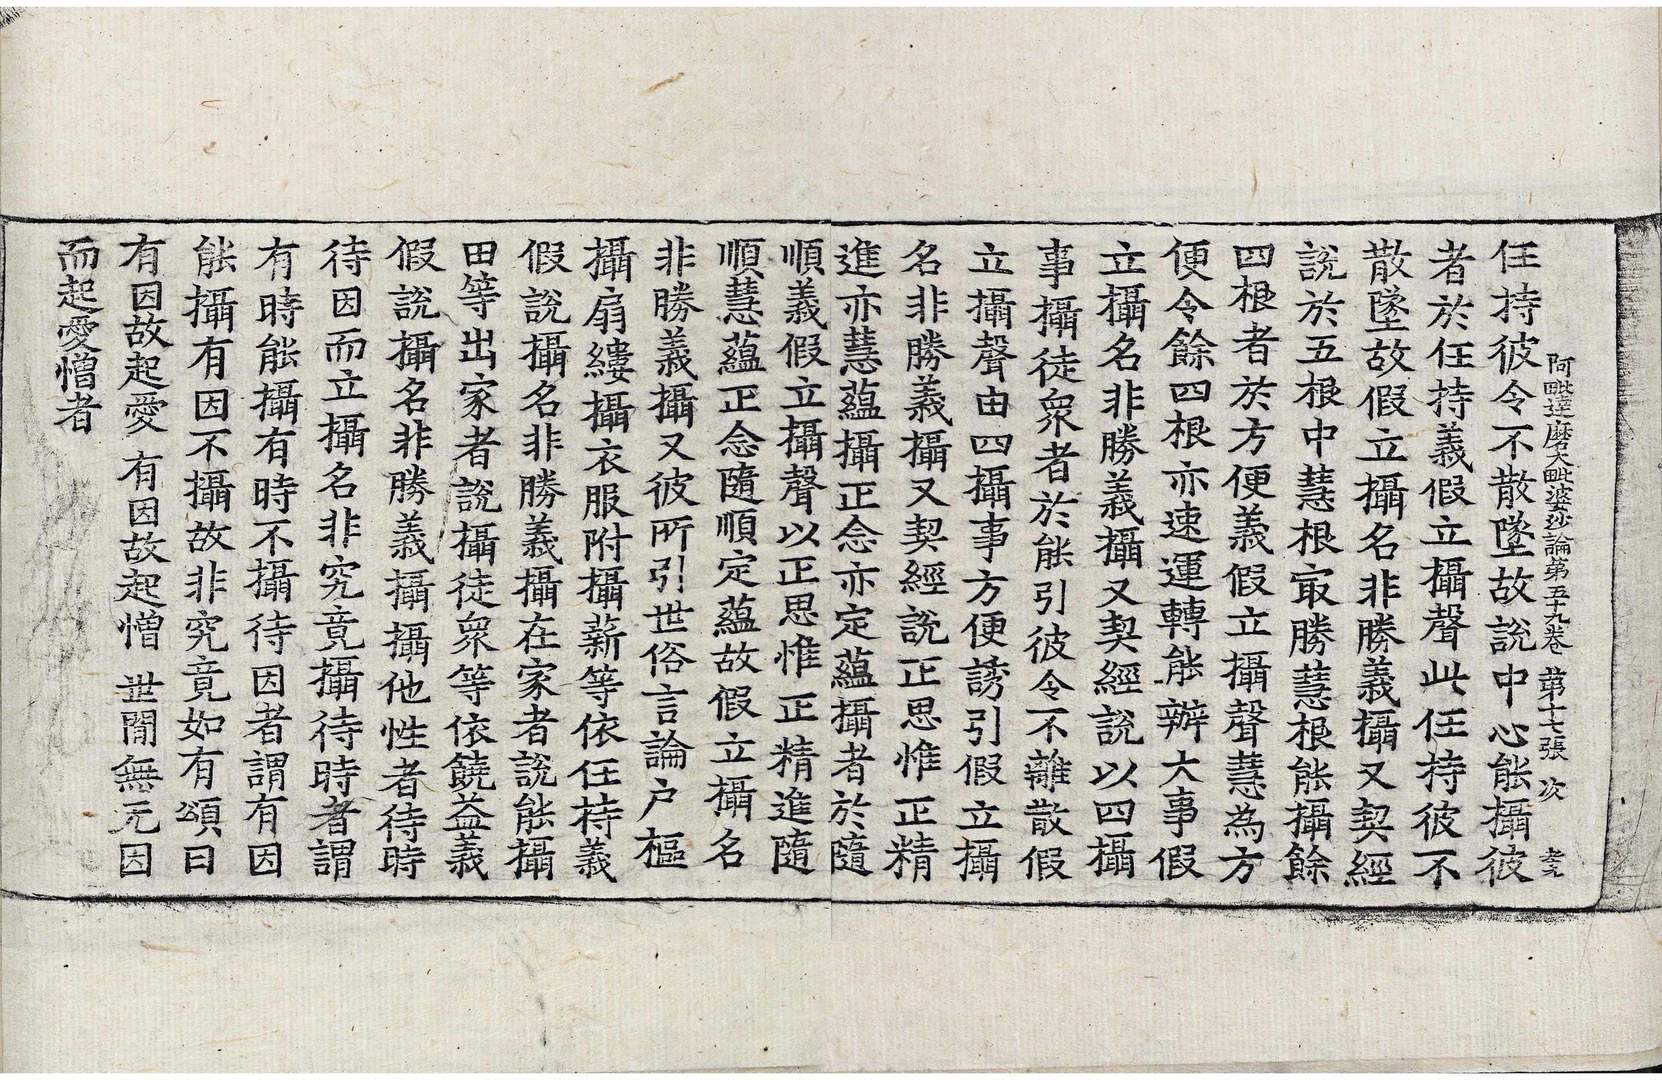 阿毗達磨大毗婆沙論第五十九卷 第十七張 次
任持彼令不散墜故說中心能攝彼
者於任持義假立攝聲此任持彼不
散墜故假立攝名非勝義攝又契經
說於五根中慧根㝡勝慧根能攝餘
四根者於方便義假立攝聲慧為方
便令餘四根亦速運轉能辦大事假
立攝名非勝義攝又契經說以四攝
事攝徒衆者於能引彼令不離散假
立攝聲由四攝事方便誘引假立攝
名非勝義攝又契經說正思惟正精
進亦慧蘊攝正念亦定蘊攝者於隨
順義假立攝聲以正思惟正精進隨
順慧蘊正念隨順定蘊故假立攝名
非勝義攝又彼所引世俗言論户樞
攝扇縷攝衣服附攝薪等依任持義
假說攝名非勝義攝在家者說能攝
田等出家者說攝徒衆等依饒益義
假說攝名非勝義攝攝他性者待時
待因而立攝名非究竟攝待時者謂
有時能攝有時不攝待因者謂有因
能攝有因不攝故非究竟如有頌曰
有因故起愛 有因故起憎 世間無无因
而起愛憎者